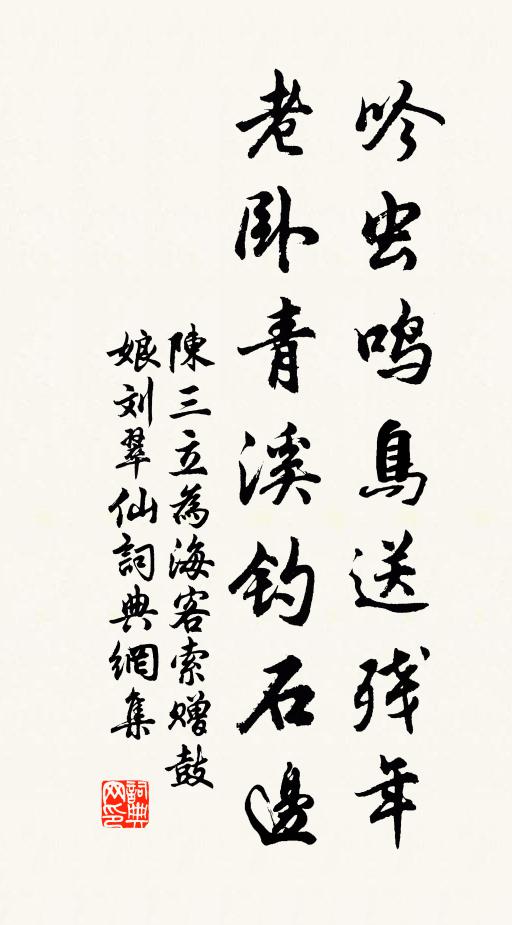 吟虫鸣鳥送残年
老卧青溪钓石邊
陳三立為海客索赠鼓
娘刘翠仙詞典網集
詞典网印